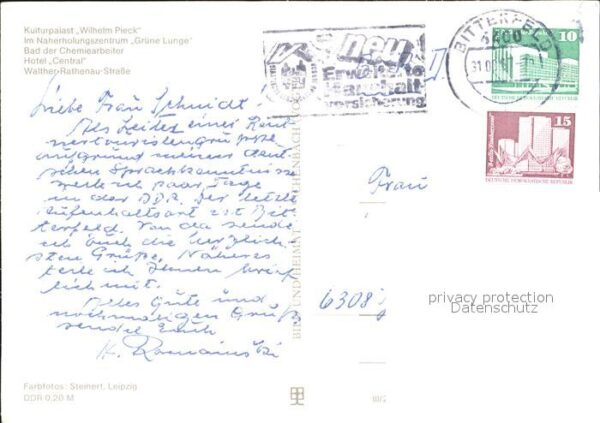 Kulturpalast „Wilhelm Pieck"
Im Naherholungszentrum „Grüne Lunge"
Bad der Chemiearbeiter
Hotel „Central"
Walther-Rathenau-Straße
neu
Erweiterte
Haushalt
versicherung
BITTERFELD
10
15
DEUTSCHE DEMOKRATISCHE REPUBLIK
Liebe Frau Schmidt!
Als Leiter einer
aufgrund meiner deut-
schen Sprachkenntnisse
ich paar Tage
in der DDR. Der letzte
Aufenthaltsort ist Bit-
terfeld. Von da sende
ich Euch die herzlich-
sten Grüße. Näheres
teile ich Ihnen brief-
lich mit.
Alles Gute und
nochmaligen Gruß
sendet Euch
Frau
6308
BILD UND HEIMAT REICHENBACH
privacy protection
Datenschutz
Farbfotos: Steinert, Leipzig
DDR 0,20 M